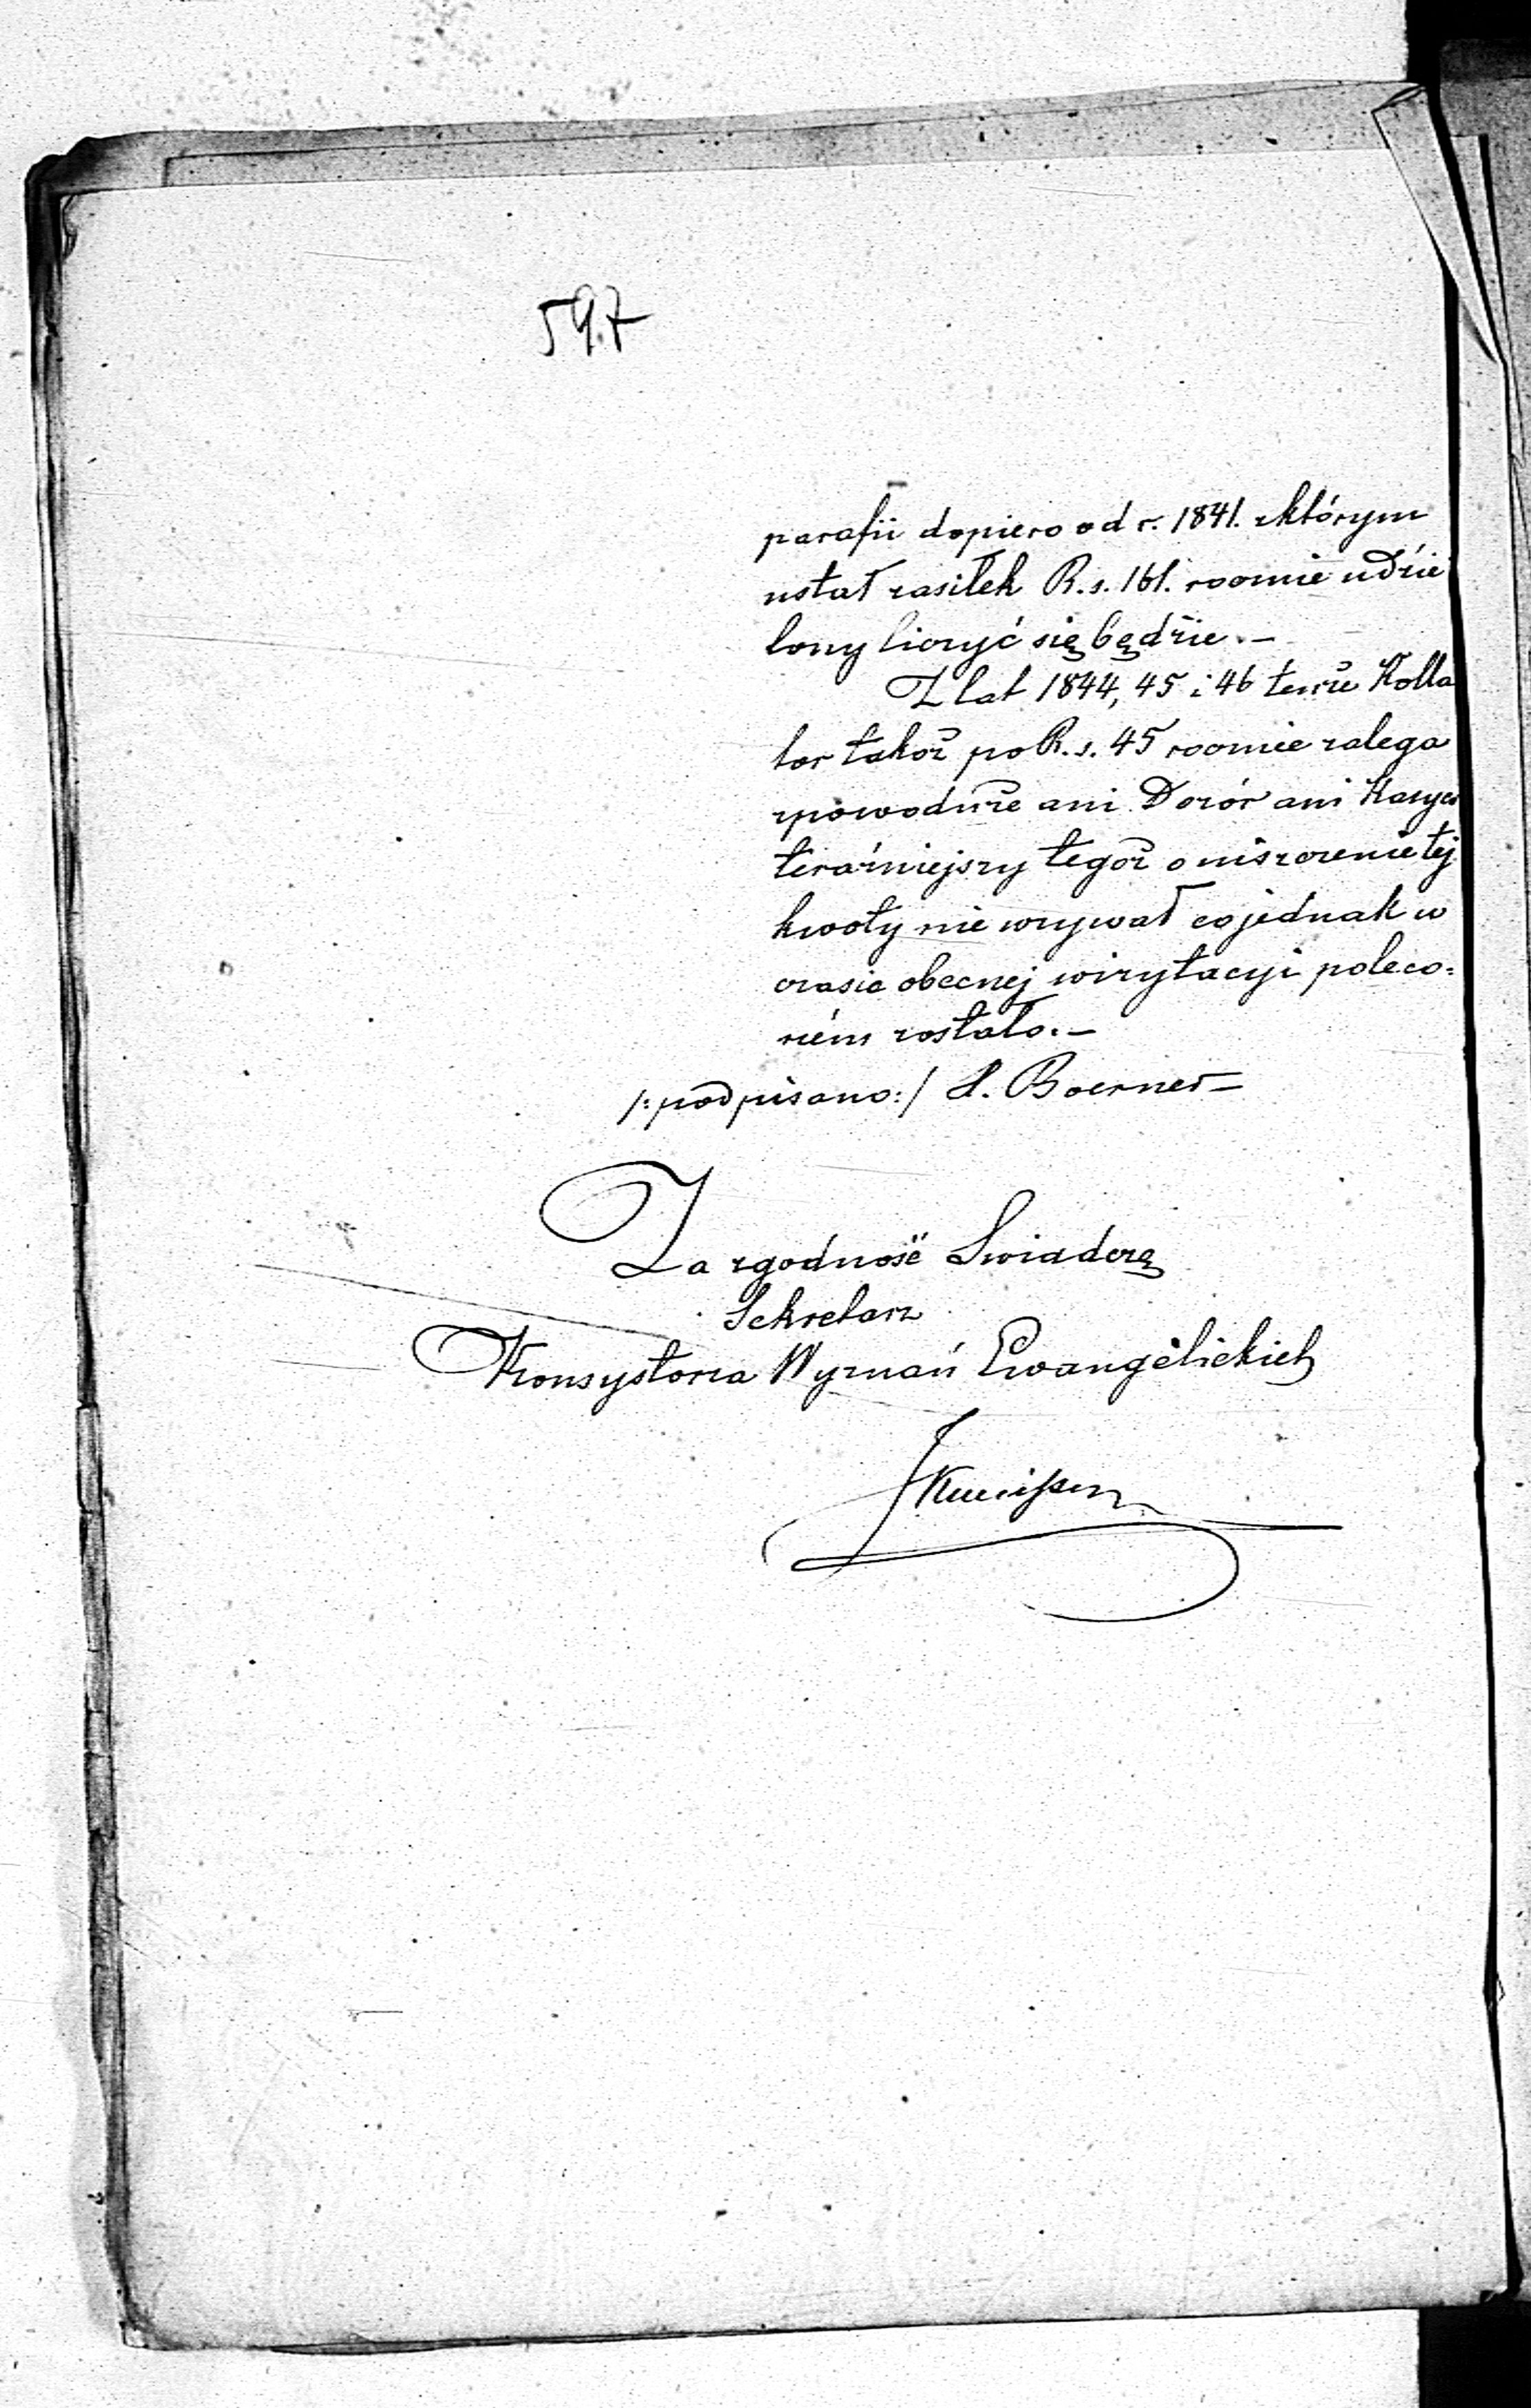 597
parafii dopiero od r. 1841. z którym
ustał zasiłek R.s. 161. rocznie udzie
lony liczyć się będzie. –
Z lat 1844, 45 i 46 tenże Kolla
tor takoż po R.s. 45 rocznie zalega
z powodu że ani Dozór ani Kasyer
teraźniejszy tegoż o uiszczenie tej
kwoty nie wzywał co jednak w
czasie obecnej wizytacyi poleco=
ném zostało. –
/: podpisano :/ L. Boerner –
Za zgodność Swiadczą
Sekretarz
Konsystorza Wyznań Ewangelickich